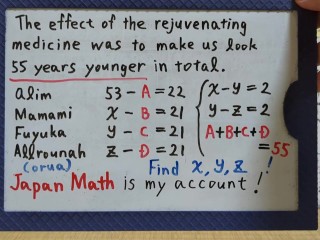 The effect of the rejuvenating
medicine was to make us look
55 years younger in total.
Alim 53 - A = 22
Mamami x - B = 21
Fuyuka y - C = 21
Allrounah z - D = 21
(orua)
x - y = 2
y - z = 2
A + B + C + D
= 55
Find x, y, z !!
Japan Math is my account !